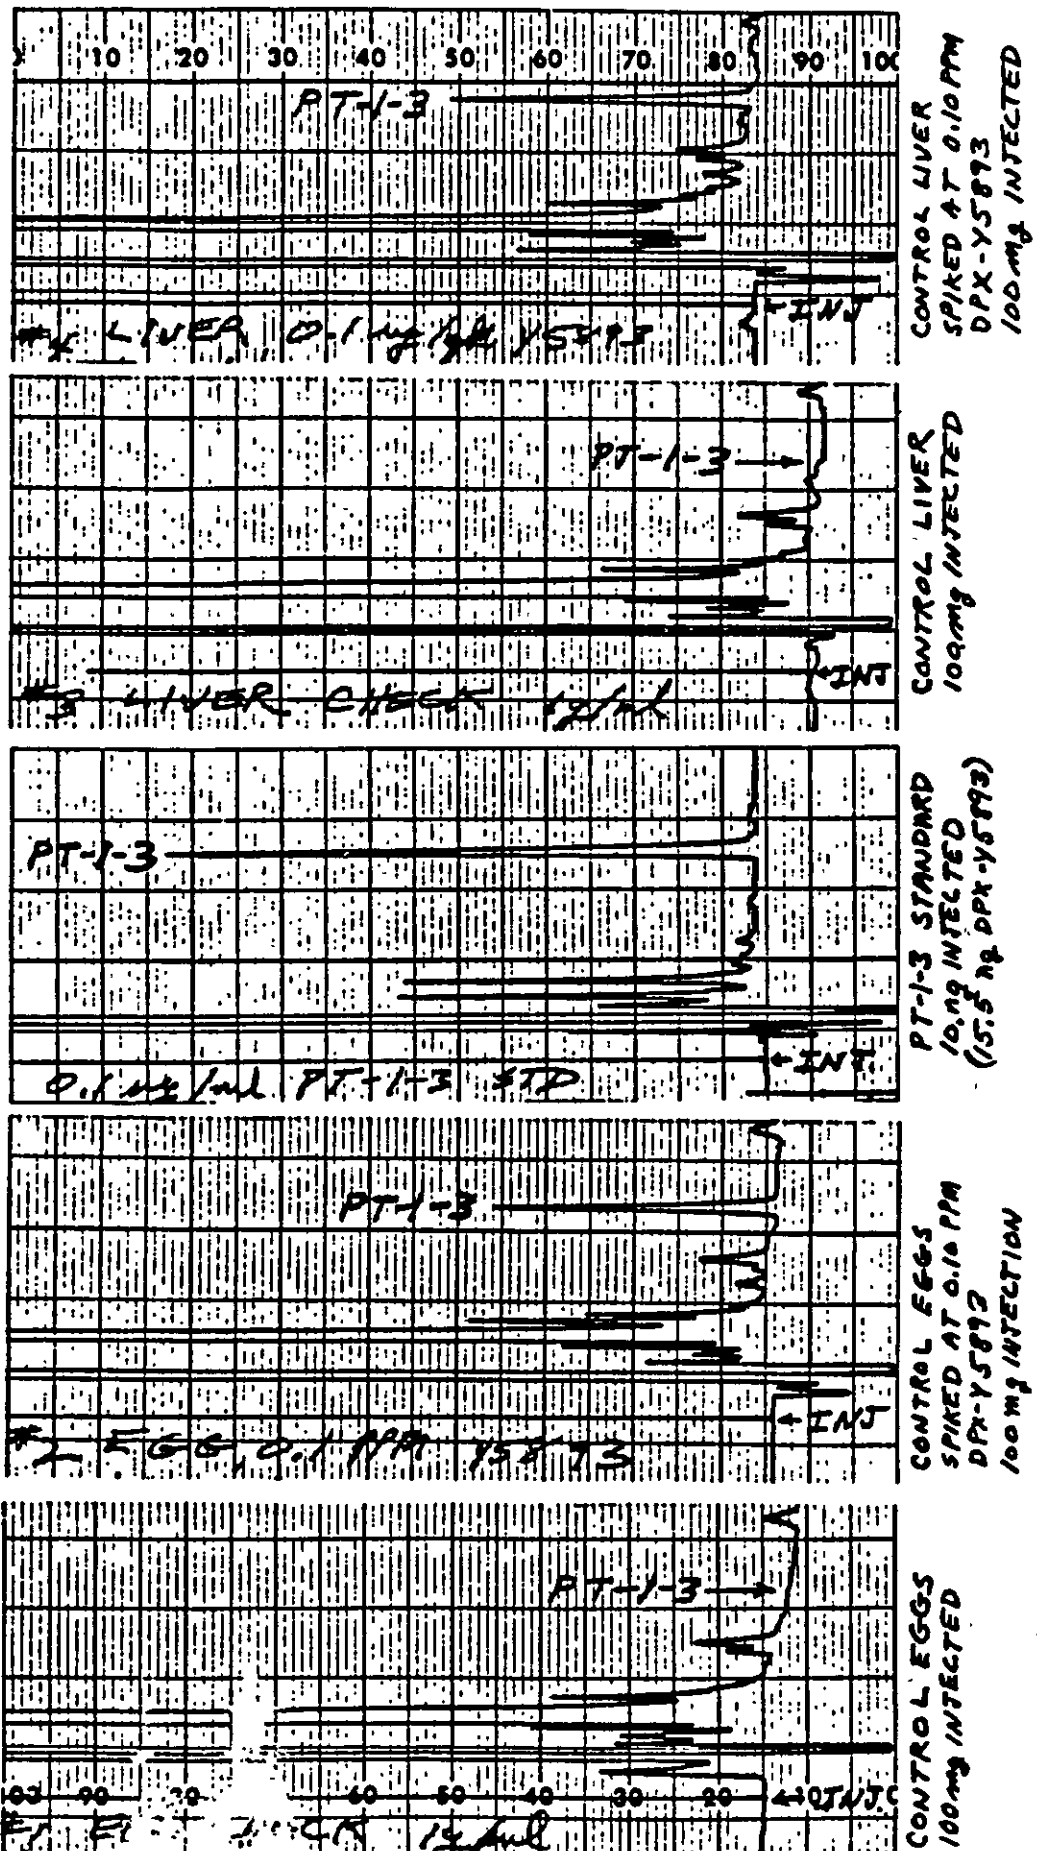 10 20 30 40 50 60 70 80 90 100
PT-1-3
← INJ
LIVER 0.1
CONTROL LIVER
SPIKED AT 0.10 PPM
DPX-Y5893
100 mg INJECTED
PT-1-3 →
← INJ
LIVER CHECK 1g/ml
CONTROL LIVER
100 mg INJECTED
PT-1-3
← INJ.
0.1 ug/ml PT-1-3 STD
PT-1-3 STANDARD
10. ng INJECTED
(15.5 ng DPX-Y5893)
PT-1-3
← INJ
#2 EGG, 0.1 PPM Y5893
CONTROL EGGS
SPIKED AT 0.10 PPM
DPX-Y5893
100 mg INJECTION
PT-1-3 →
90 60 40 30 20
1g/ml
CONTROL EGGS
100 mg INJECTED